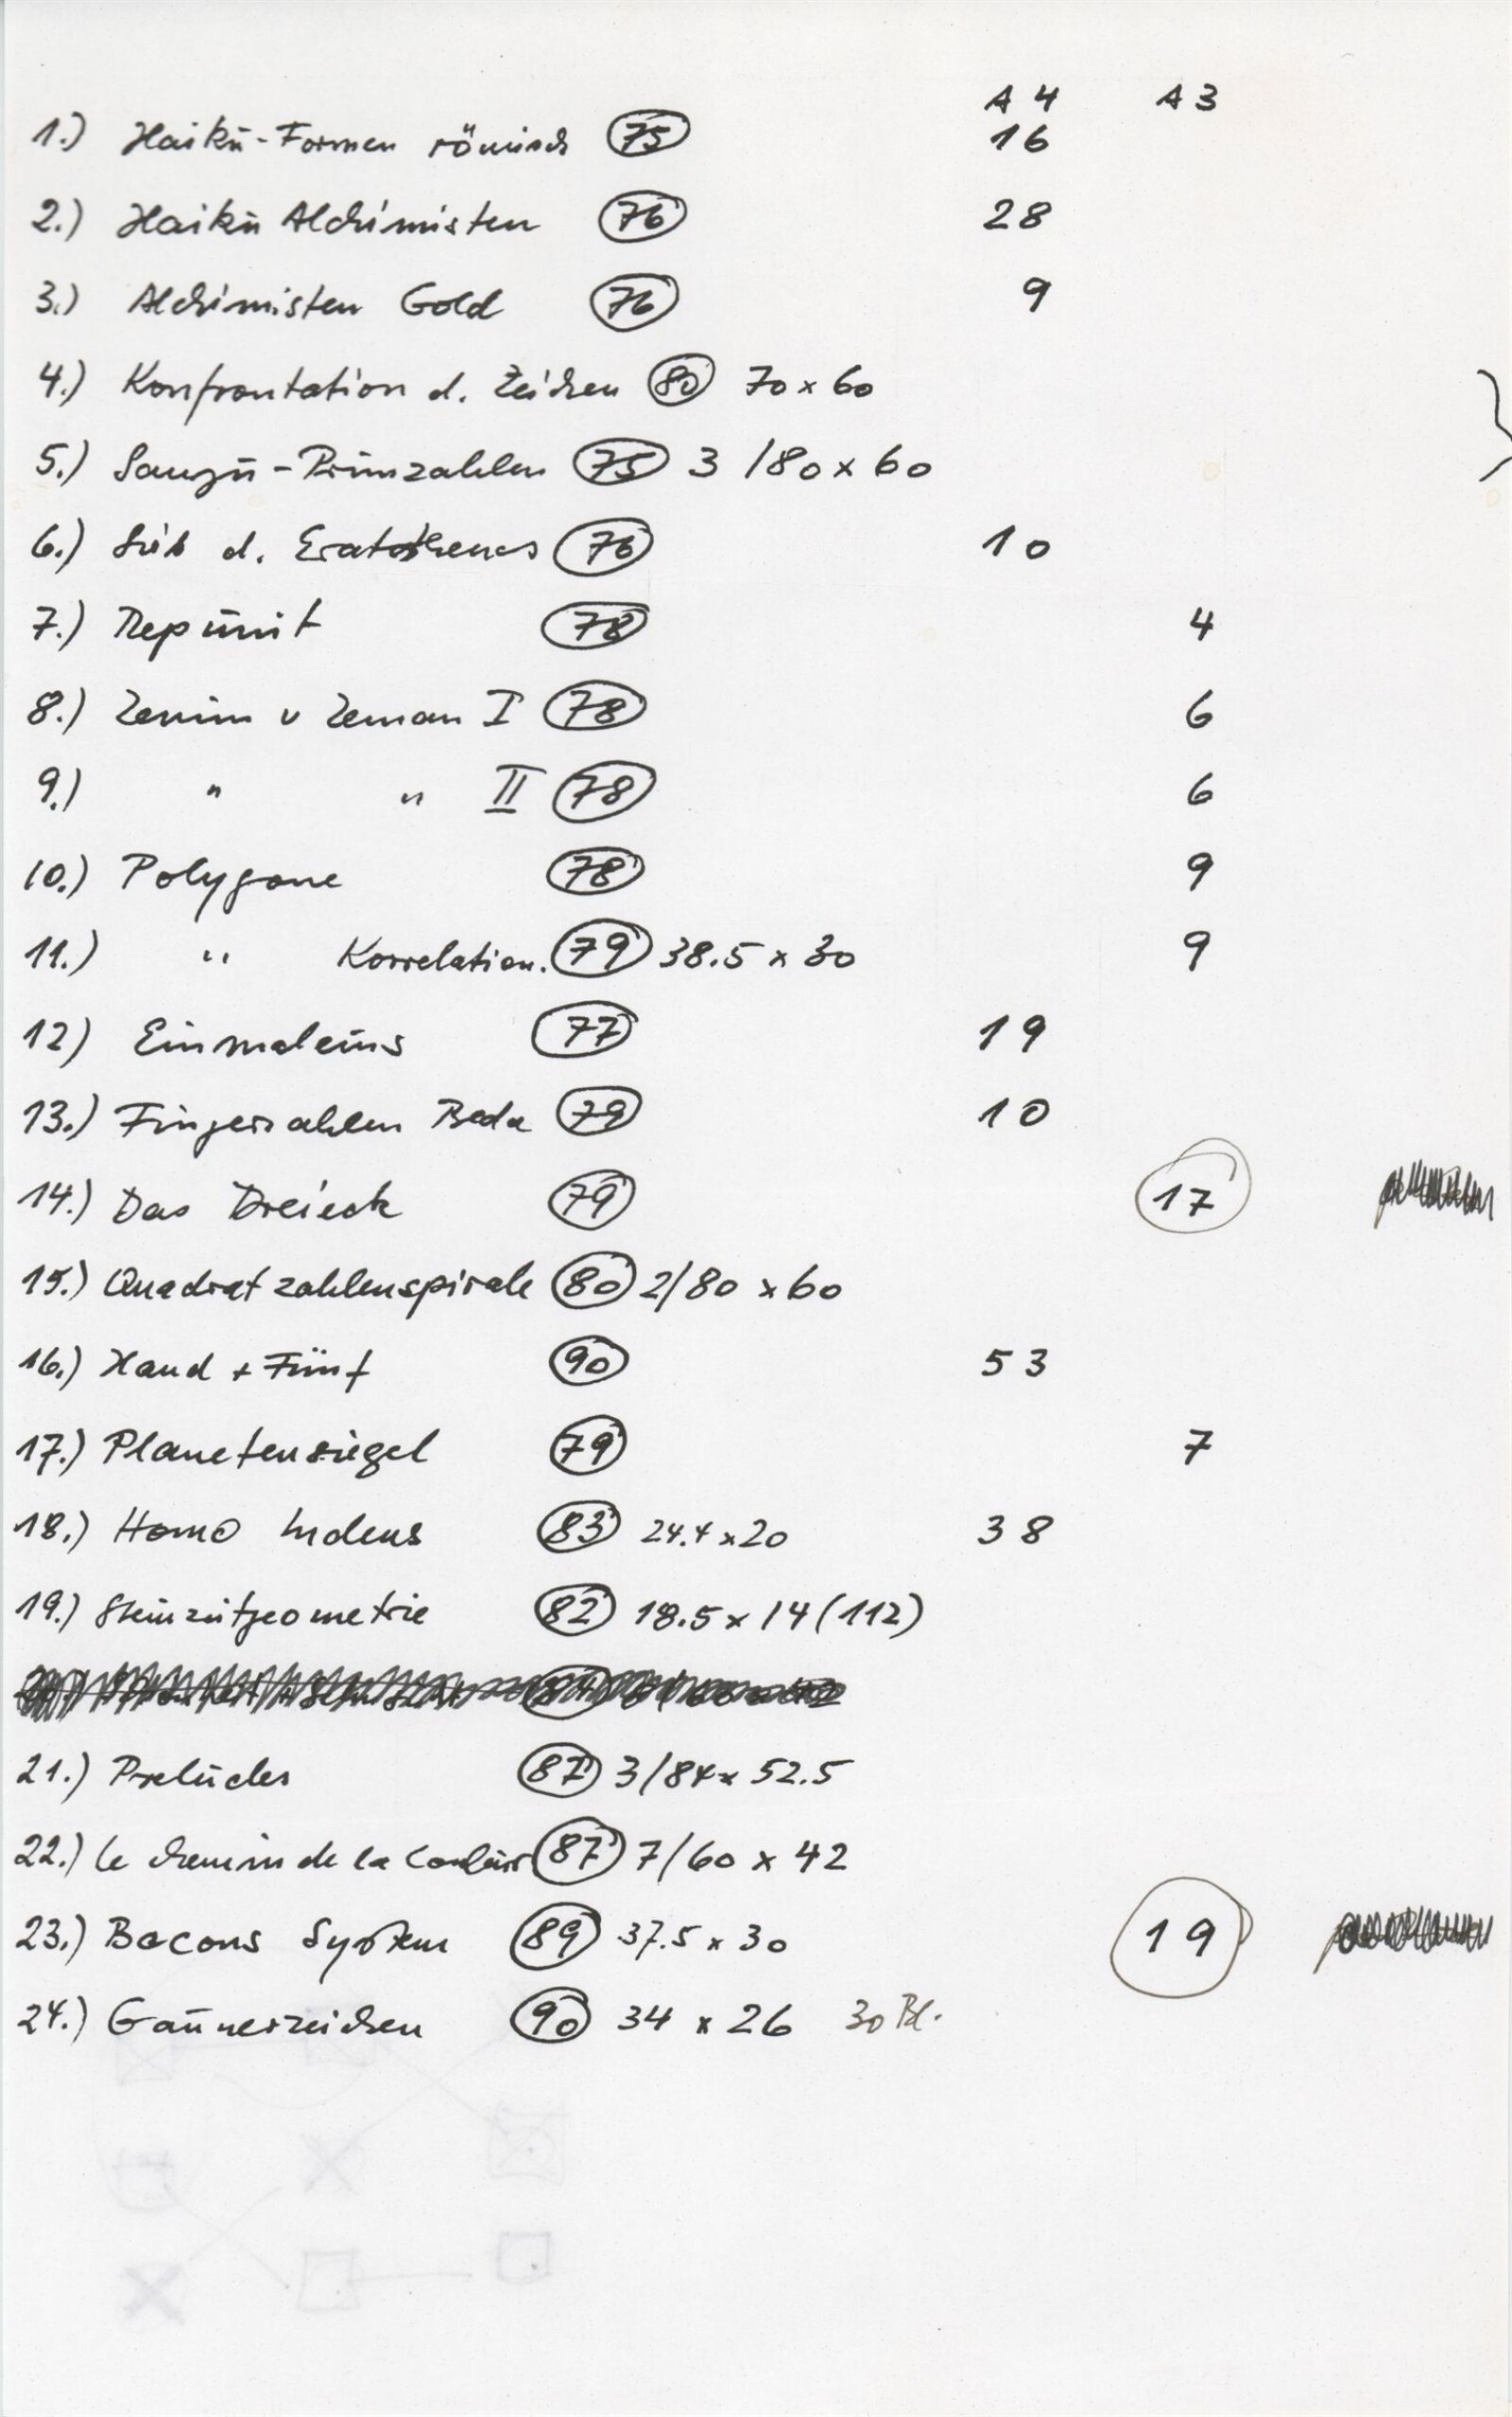 A4 A3
1.) Haiku-Formen römisch 75 16
2.) Haiku Alchimisten 76 28
3.) Alchimisten Gold 76 9
4.) Konfrontation d. Zeichen 80 70 x 60
5.) Sanzū-Primzahlen 75 3 / 80 x 60
6.) Sieb d. Eratosthenes 76 10
7.) Repunit 78 4
8.) v Zeman I 78 6
9.) " " II 78 6
10.) Polygone 78 9
11.) " Korrelation. 79 38.5 x 30 9
12) Einmaleins 77 19
13.) Fingerzahlen Beda 79 10
14.) Das Dreieck 79 17
15.) Quadratzahlenspirale 80 2/80 x 60
16.) Hand + Fünf 90 53
17.) Planetensiegel 79 7
18.) Homo ludens 83 24.4 x 20 38
19.) Steinzeitgeometrie 82 18.5 x 14 (112)
21.) Preludes 87 3/84 x 52.5
22.) Le chemin de la Couleur 87 7/60 x 42
23.) Bacons System 89 37.5 x 30 19
24.) Gaunerzeichen 90 34 x 26 30 Bl.